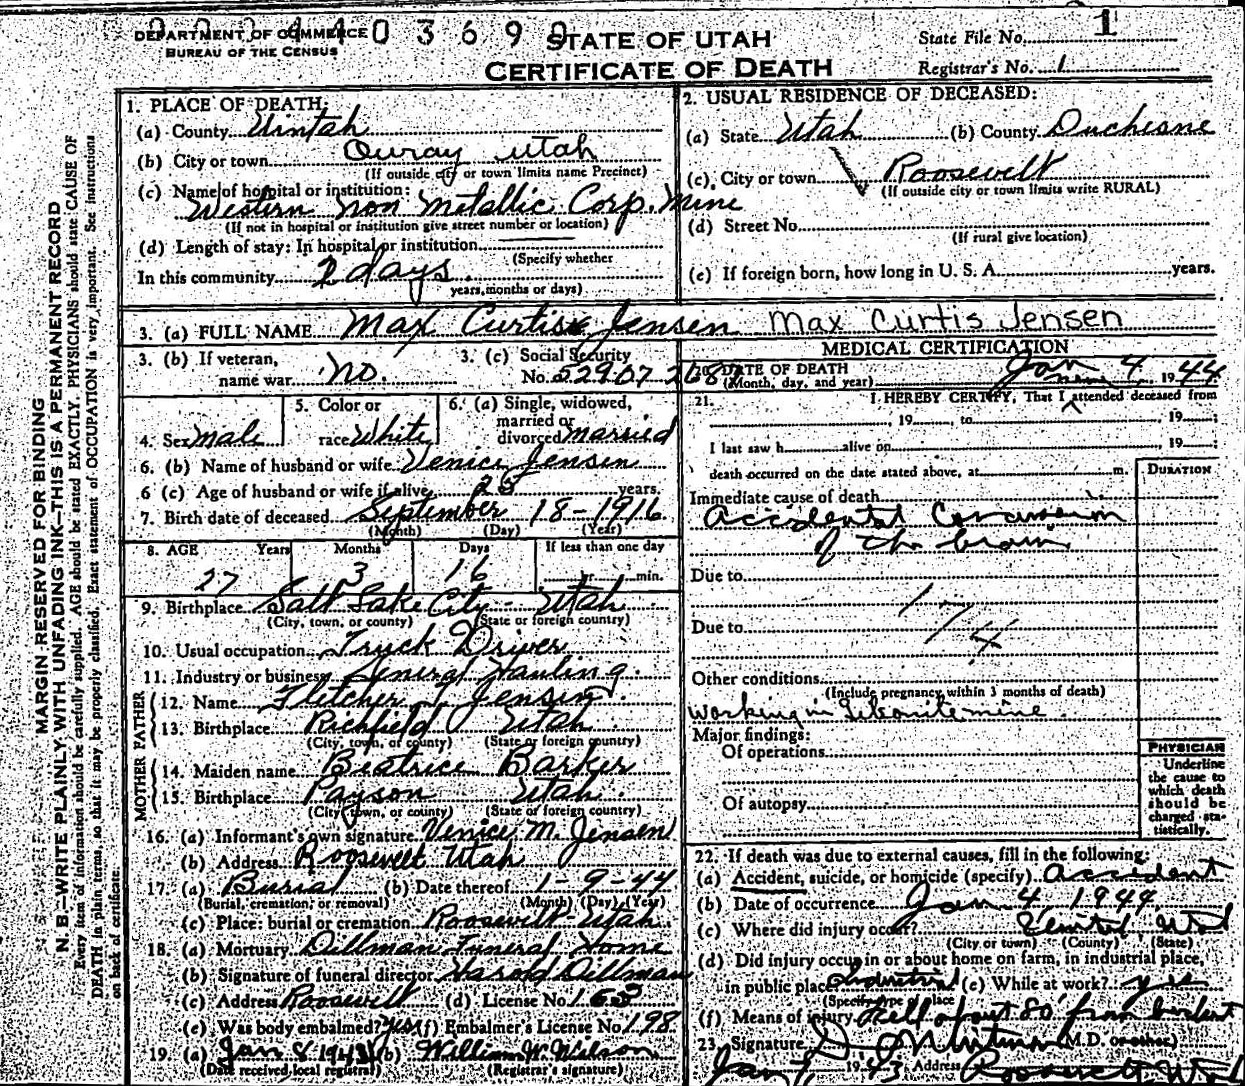 DEPARTMENT OF COMMERCE
BUREAU OF THE CENSUS
0 3 6 9
STATE OF UTAH
CERTIFICATE OF DEATH
State File No. 1
Registrar's No. 1
MARGIN RESERVED FOR BINDING
N. B.—WRITE PLAINLY WITH UNFADING INK—THIS IS A PERMANENT RECORD
Every item of information should be carefully supplied. AGE should be stated EXACTLY. PHYSICIANS should state CAUSE OF
DEATH in plain terms, so that it may be properly classified. Exact statement of OCCUPATION is very important. See instructions
on back of certificate.
1. PLACE OF DEATH:
(a) County Uintah
(b) City or town Ouray Utah
(If outside city or town limits name Precinct)
(c) Name of hospital or institution:
Western Non Metallic Corp. Mine
(If not in hospital or institution give street number or location)
(d) Length of stay: In hospital or institution
(Specify whether
In this community 2 days
years, months or days)
2. USUAL RESIDENCE OF DECEASED:
(a) State Utah (b) County Duchesne
(c) City or town Roosevelt
(If outside city or town limits write RURAL)
(d) Street No.
(If rural give location)
(e) If foreign born, how long in U. S. A. years.
3. (a) FULL NAME Max Curtis Jensen Max Curtis Jensen
3. (b) If veteran,
name war No.
3. (c) Social Security
No. 529 07 268
4. Sex Male
5. Color or
race White
6. (a) Single, widowed,
married or
divorced Married
6. (b) Name of husband or wife Venice Jensen
6 (c) Age of husband or wife if alive 25 years.
7. Birth date of deceased September 18-1916
(Month) (Day) (Year)
8. AGE Years Months Days If less than one day
27 3 16 hr. min.
9. Birthplace Salt Lake City - Utah
(City, town, or county) (State or foreign country)
10. Usual occupation Truck Driver
11. Industry or business General Hauling
FATHER
12. Name Fletcher J. Jensen
13. Birthplace Richfield Utah
(City, town, or county) (State or foreign country)
MOTHER
14. Maiden name Beatrice Barker
15. Birthplace Payson Utah
(City, town, or county) (State or foreign country)
16. (a) Informant's own signature Venice M. Jensen
(b) Address Roosevelt Utah
17. (a) Burial (b) Date thereof 1-9-44
(Burial, cremation, or removal) (Month) (Day) (Year)
(c) Place: burial or cremation Roosevelt Utah
18. (a) Mortuary Dillman Funeral Home
(b) Signature of funeral director Harold Dillman
(c) Address Roosevelt (d) License No. 163
(e) Was body embalmed? yes (f) Embalmer's License No. 198
19. (a) Jan 8 1943 (b) William W. Wilson
(Date received local registrar) (Registrar's signature)
MEDICAL CERTIFICATION
20. DATE OF DEATH Jan 4 1944
(Month, day, and year)
21. I HEREBY CERTIFY, That I attended deceased from
, 19 , to , 19 ;
I last saw h alive on 19 ;
death occurred on the date stated above, at m.
DURATION
Immediate cause of death
Accidental Concussion
of the brain
Due to
Due to
1 7/4
Other conditions
(Include pregnancy within 3 months of death)
Working in Gilsonite mine
Major findings:
Of operations
Of autopsy
PHYSICIAN
Underline
the cause to
which death
should be
charged sta-
tistically.
22. If death was due to external causes, fill in the following:
(a) Accident, suicide, or homicide (specify) Accident
(b) Date of occurrence Jan. 4, 1944
(c) Where did injury occur? Utah
(City or town) (County) (State)
(d) Did injury occur in or about home on farm, in industrial place,
in public place Industrial (e) While at work? yes
(Specify type of place
(f) Means of injury Fell about 80' from
23. Signature (M.D. or other)
Jan 7, 1943 Address Roosevelt Utah